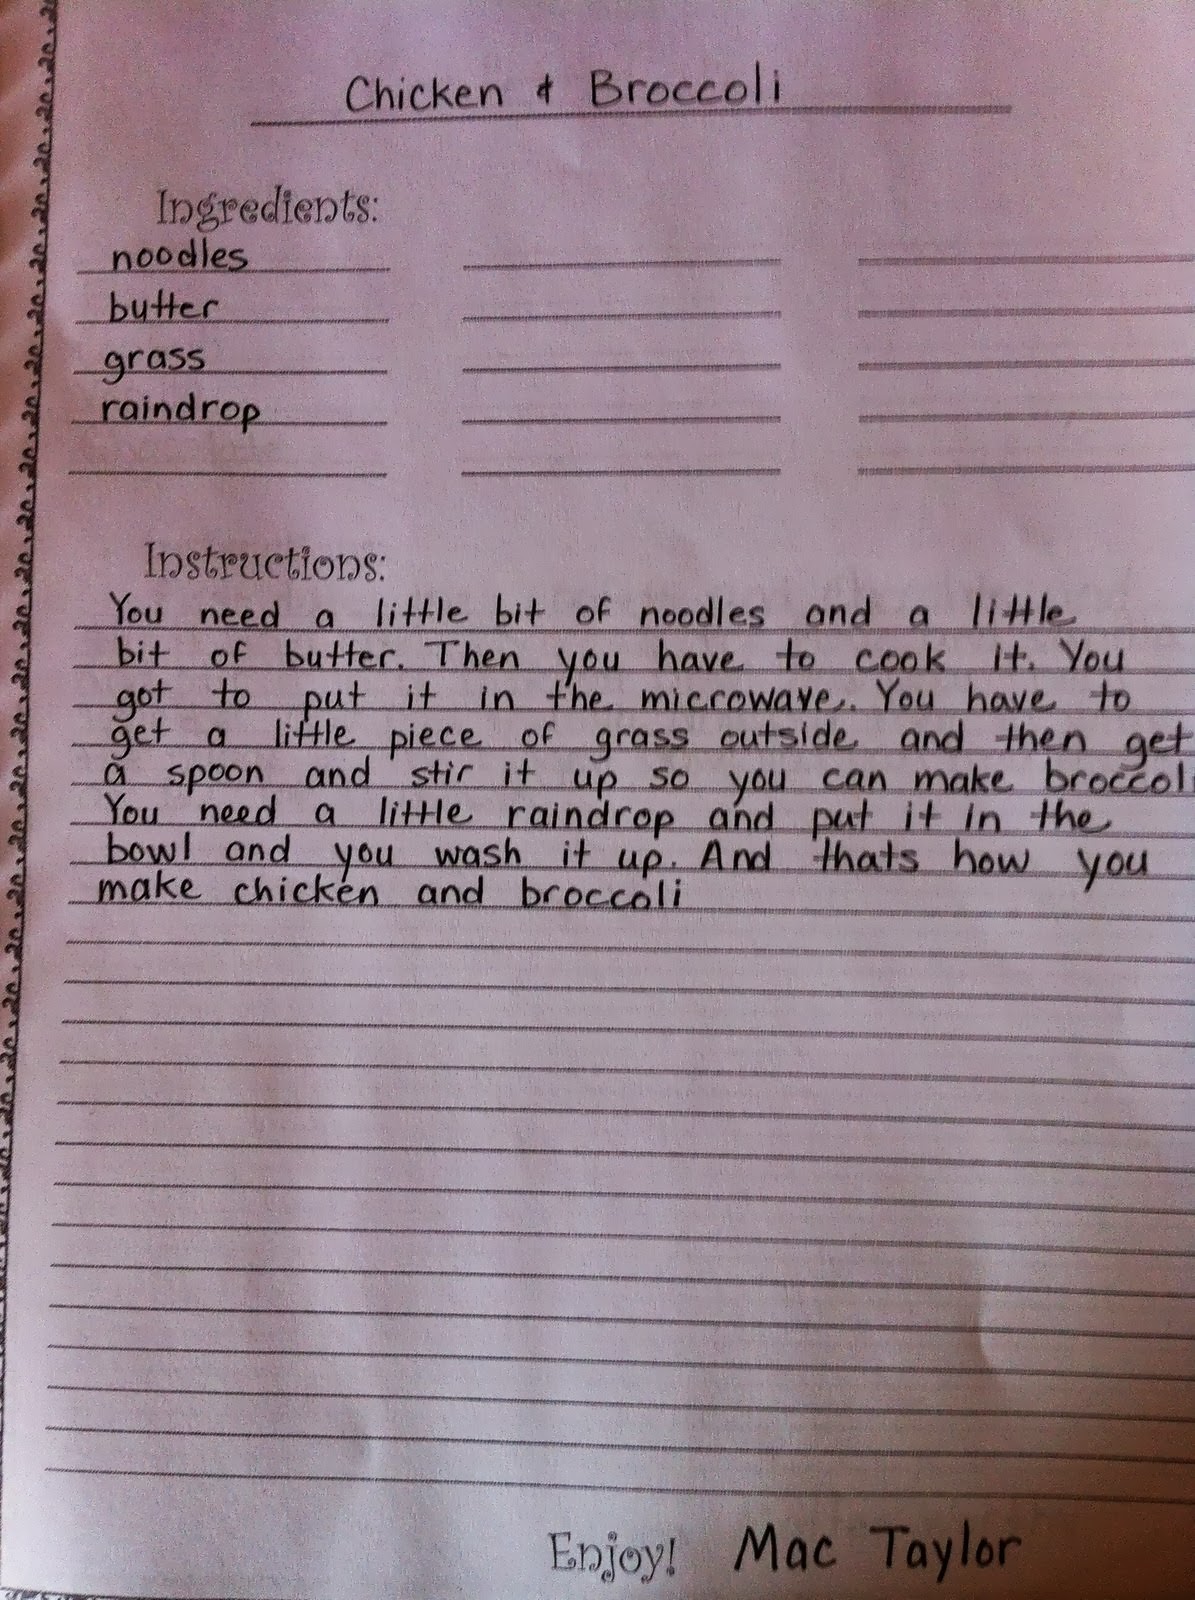 Chicken & Broccoli
Ingredients:
noodles
butter
grass
raindrop
Instructions:
You need a little bit of noodles and a little
bit of butter. Then you have to cook it. You
got to put it in the microwave. You have to
get a little piece of grass outside and then get
a spoon and stir it up so you can make broccoli
You need a little raindrop and put it in the
bowl and you wash it up. And thats how you
make chicken and broccoli
Enjoy! Mac Taylor